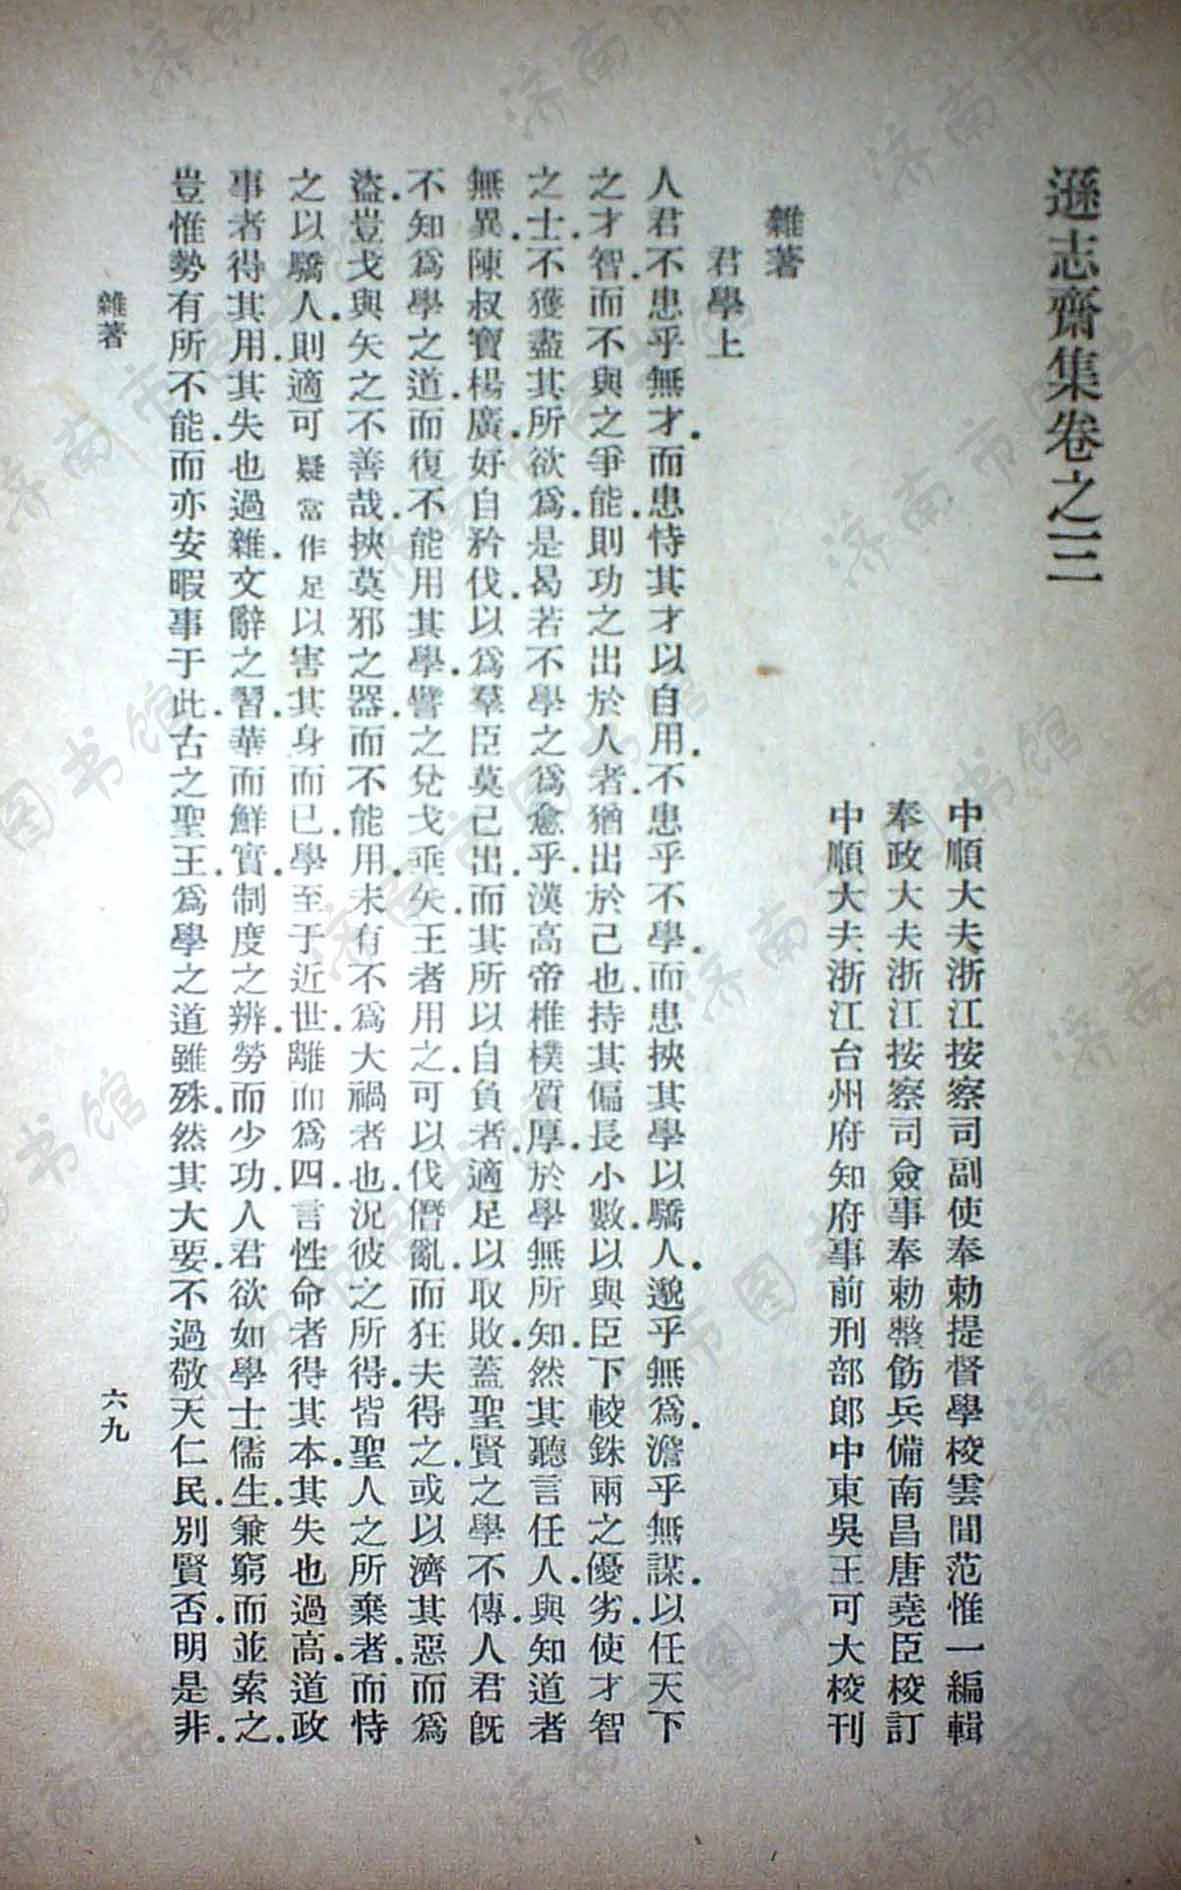 遜志齋集卷之三
中順大夫浙江按察司副使奉勅提督學校雲間范惟一編輯
奉政大夫浙江按察司僉事奉勅整飭兵備南昌唐堯臣校訂
中順大夫浙江台州府知府事前刑部郎中東吳王可大校刊
雜著
君學上
人君不患乎無才.而患恃其才以自用.不患乎不學.而患挾其學以驕人.邈乎無爲.澹乎無謀.以任天下
之才智.而不與之爭能.則功之出於人者.猶出於己也.持其偏長小數.以與臣下較銖兩之優劣.使才智
之士.不獲盡其所欲爲.是曷若不學之爲愈乎.漢高帝椎樸質厚.於學無所知.然其聽言任人.與知道者
無異.陳叔寶楊廣.好自矜伐.以爲羣臣莫己出.而其所以自負者.適足以取敗.蓋聖賢之學不傳.人君旣
不知爲學之道.而復不能用其學.譬之兌戈垂矢.王者用之.可以伐僭亂.而狂夫得之.或以濟其惡而爲
盜.豈戈與矢之不善哉.挾莫邪之器.而不能用.未有不爲大禍者也.況彼之所得.皆聖人之所棄者.而恃
之以驕人.則適可疑當作足以害其身而已.學至于近世.離而爲四.言性命者得其本.其失也過高.道政
事者得其用.其失也過雜.文辭之習.華而鮮實.制度之辨.勞而少功.人君欲如學士儒生.兼窮而並索之.
豈惟勢有所不能.而亦安暇事于此.古之聖王.爲學之道雖殊.然其大要.不過敬天仁民.別賢否.明是非.
雜著
六九
济南市图书馆